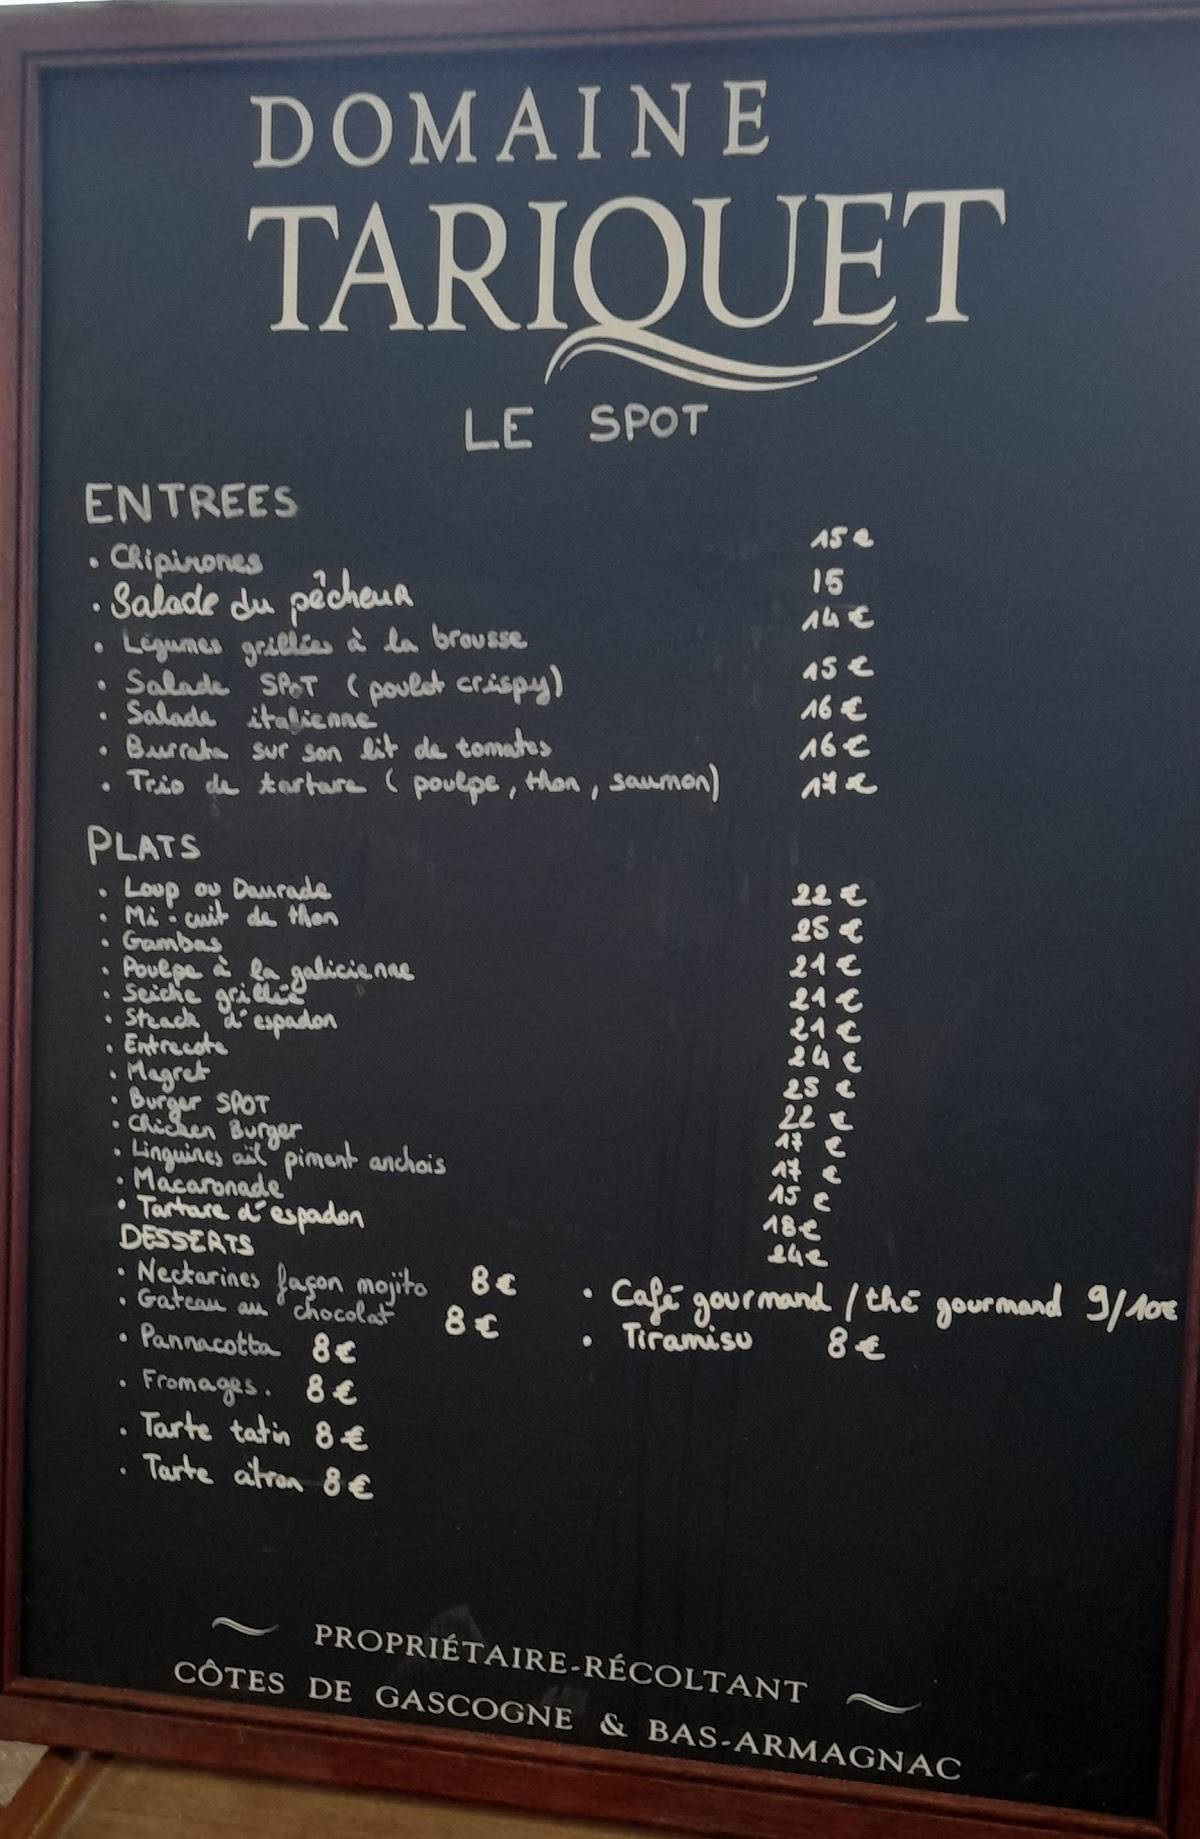 DOMAINE
TARIQUET
LE SPOT
ENTREES
• Chipirones 15 €
• Salade du pêcheur 15
• Légumes grillées à la brousse 14 €
• Salade SPOT (poulet crispy) 15 €
• Salade italienne 16 €
• Burrata sur son lit de tomates 16 €
• Trio de tartare (poulpe, thon, saumon) 17 €
PLATS
• Loup ou Daurade 22 €
• Mi-cuit de thon 25 €
• Gambas 21 €
• Poulpe à la galicienne 21 €
• Seiche grillée 21 €
• Steack d'espadon 24 €
• Entrecote 25 €
• Magret 22 €
• Burger SPOT 17 €
• Chicken Burger 17 €
• Linguines ail piment anchois 15 €
• Macaronade 18 €
• Tartare d'espadon 24 €
DESSERTS
• Nectarines façon mojito 8 €
• Gateau au chocolat 8 €
• Pannacotta 8 €
• Fromages. 8 €
• Tarte tatin 8 €
• Tarte citron 8 €
• Café gourmand / thé gourmand 9/10€
• Tiramisu 8 €
PROPRIÉTAIRE-RÉCOLTANT
CÔTES DE GASCOGNE & BAS-ARMAGNAC